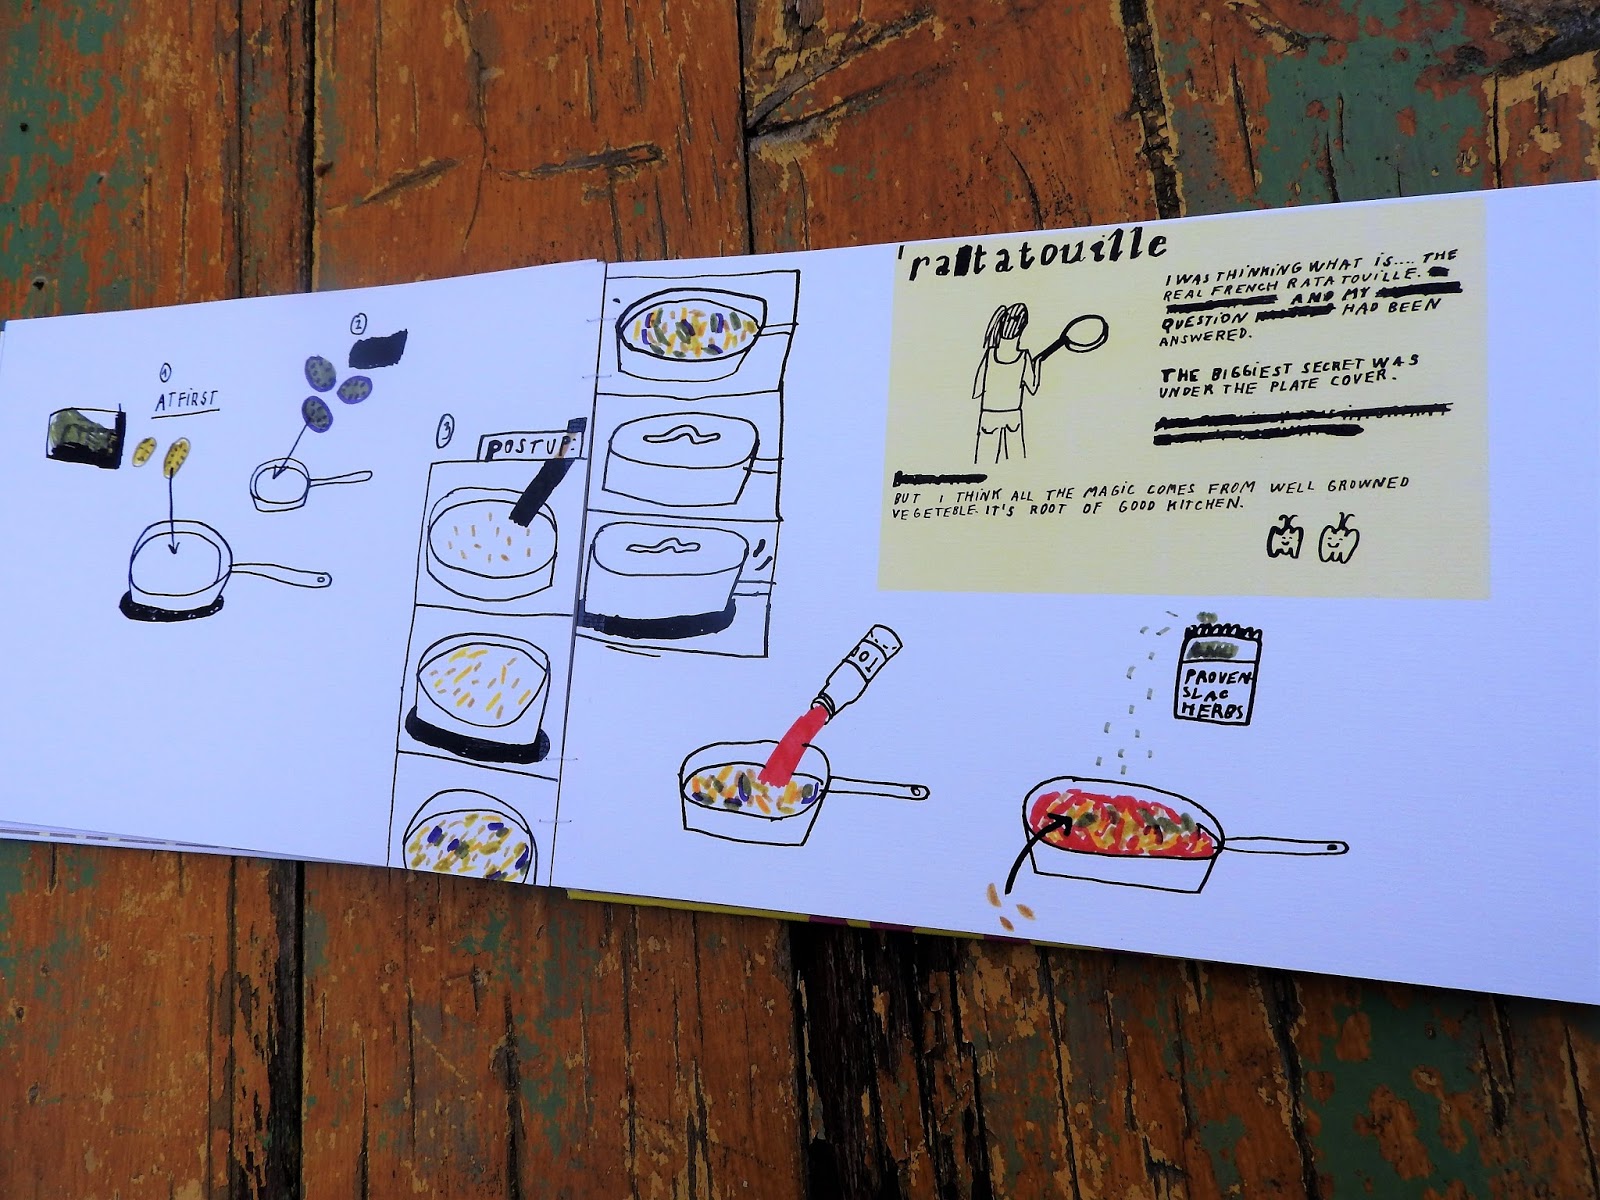 1
AT FIRST
2
3
POST UP:
'ratatouille
I WAS THINKING WHAT IS.... THE
REAL FRENCH RATATOUILLE.
AND MY
QUESTION HAD BEEN
ANSWERED.
THE BIGGIEST SECRET WAS
UNDER THE PLATE COVER.
BUT I THINK ALL THE MAGIC COMES FROM WELL GROWNED
VEGETEBLE. IT'S ROOT OF GOOD KITCHEN.
PROVEN-
SLAC
HERBS